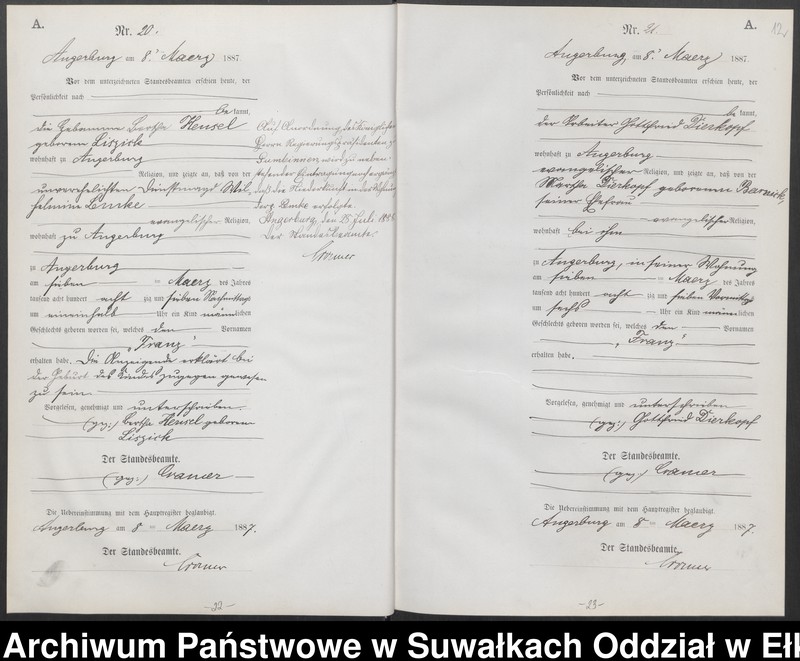 A.
Nr. 20.
Angerburg am 8. Maerz 1887.
Vor dem unterzeichneten Standesbeamten erschien heute, der
Persönlichkeit nach
be kannt,
die Hebamme Bertha Hensel
geborene Liszick
wohnhaft zu Angerburg
Religion, und zeigte an, daß von der
unverehelichten Dienstmagd Wil-
helmine Lemke
evangelischer Religion,
wohnhaft zu Angerburg
zu Angerburg
am sieben Maerz des Jahres
tausend acht hundert acht zig und sieben Nachmittags
um eineinhalb Uhr ein Kind männlichen
Geschlechts geboren worden sei, welches den Vornamen
„Franz"
erhalten habe. Die Anzeigende erklärt bei
der Geburt des Kindes zugegen gewesen
zu sein.
Vorgelesen, genehmigt und unterschrieben
(gez:) Bertha Hensel geborene
Liszick
Der Standesbeamte.
(gez:) Cramer
Die Uebereinstimmung mit dem Hauptregister beglaubigt.
Angerburg am 8 Maerz 1887.
Der Standesbeamte.
Cramer
-22-
Auf Anordnung des Königlichen
Herrn Regierungspräsidenten zu
Gumbinnen wird zu neben-
stehender Eintragung
daß die Niederkunft
der p. Lemke erfolgte.
Angerburg, den 25. Juli
Der Standesbeamte.
Cramer
A.
12
Nr. 21.
Angerburg, am 8. Maerz 1887.
Vor dem unterzeichneten Standesbeamten erschien heute, der
Persönlichkeit nach
be kannt,
der Arbeiter Gottfried Dierkopf
wohnhaft zu Angerburg
evangelischer Religion, und zeigte an, daß von der
Martha Dierkopf geborenen Barnick,
seiner Ehefrau
evangelischer Religion,
wohnhaft bei ihm
zu Angerburg, in seiner Wohnung
am sieben Maerz des Jahres
tausend acht hundert acht zig und sieben Vormittags
um sechs Uhr ein Kind männlichen
Geschlechts geboren worden sei, welches den Vornamen
„Franz"
erhalten habe.
Vorgelesen, genehmigt und unterschrieben
(gez:) Gottfried Dierkopf
Der Standesbeamte.
(gez:) Cramer
Die Uebereinstimmung mit dem Hauptregister beglaubigt.
Angerburg am 8 Maerz 1887.
Der Standesbeamte.
Cramer
-23-
Archiwum Państwowe w Suwałkach Oddział w Ełk